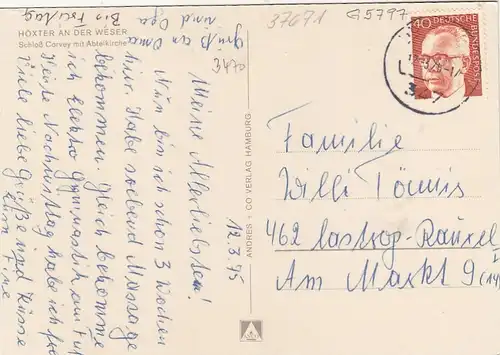 HÖXTER AN DER WESER
Schloß Corvey mit Abteikirche
Bis Freitag
Grüß an Oma
und Opa
3470
12.3.75
Meine Allerliebsten!
Nun bin ich schon 3 Wochen
hier. Habe soeben Massage
bekommen. Gleich bekomme
ich Elektrogymnastik am Fuß
Heute Nachmittag habe ich frei
Viele liebe Grüße und Küsse
ANDRES + CO VERLAG HAMBURG
37671
G5797
40 DEUTSCHE
BUNDESPOST
Familie
Willi Tönnis
462 Castrop-Rauxel I
Am Markt 9 (14)